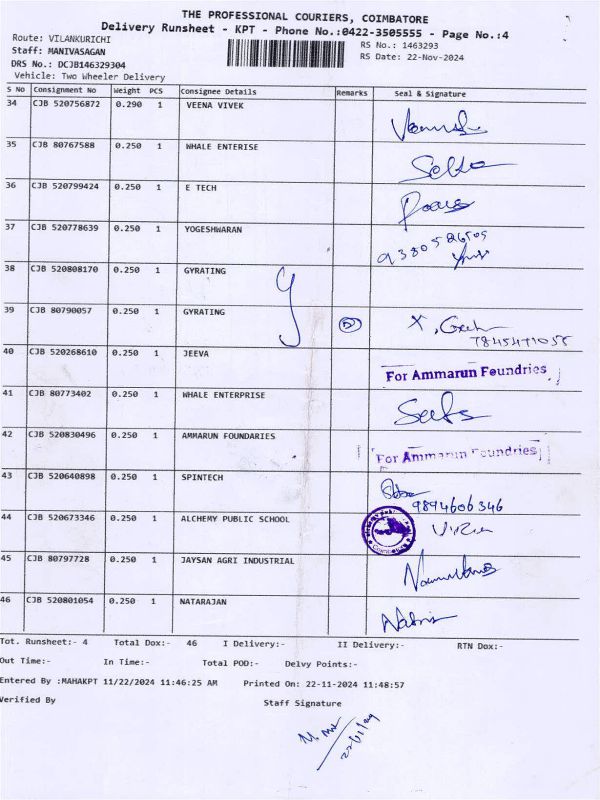 THE PROFESSIONAL COURIERS, COIMBATORE
Delivery Runsheet - KPT - Phone No.:0422-3505555 - Page No.:4
Route: VILANKURICHI
RS No.: 1463293
Staff: MANIVASAGAN
RS Date: 22-Nov-2024
DRS No.: DCJB146329304
Vehicle: Two Wheeler Delivery
S No Consignment No Weight PCS Consignee Details Remarks Seal & Signature
34 CJB 520756872 0.290 1 VEENA VIVEK
35 CJB 80767588 0.250 1 WHALE ENTERISE
36 CJB 520799424 0.250 1 E TECH
37 CJB 520778639 0.250 1 YOGESHWARAN
38 CJB 520808170 0.250 1 GYRATING
39 CJB 80790057 0.250 1 GYRATING
40 CJB 520268610 0.250 1 JEEVA For Ammarun Foundries
41 CJB 80773402 0.250 1 WHALE ENTERPRISE
42 CJB 520830496 0.250 1 AMMARUN FOUNDARIES For Ammarun Foundries
43 CJB 520640898 0.250 1 SPINTECH 9894606346
44 CJB 520673346 0.250 1 ALCHEMY PUBLIC SCHOOL
45 CJB 80797728 0.250 1 JAYSAN AGRI INDUSTRIAL
46 CJB 520801054 0.250 1 NATARAJAN
Tot. Runsheet:- 4 Total Dox:- 46 I Delivery:- II Delivery:- RTN Dox:-
Out Time:- In Time:- Total POD:- Delvy Points:-
Entered By :MAHAKPT 11/22/2024 11:46:25 AM Printed On: 22-11-2024 11:48:57
Verified By Staff Signature